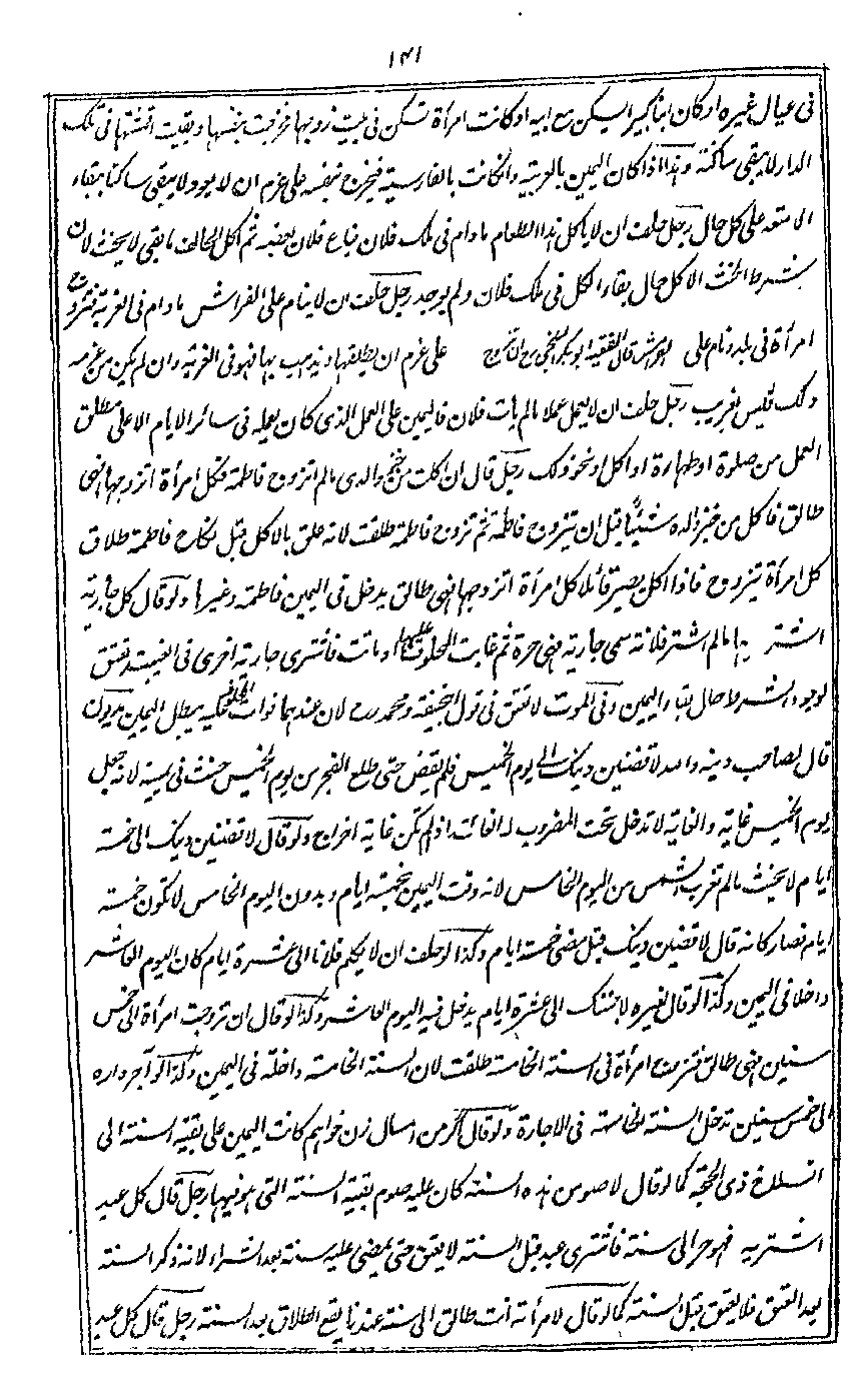 ۱۴۱
فی عیال غیره او کان ابنا کبیرا لیسکن مع ابیه او کانت امرأة تسکن فی بیت زوجها فخرجت بنفسها و بقیت اقمشتها فی تلک
الدار لا یبقی ساکنة و هذا اذا کان الیمین بالعربیة و ان کانت بالفارسیة فخرج بنفسه علی عزم ان لا یعود لا یبقی ساکنا ببقاء
الامتعة علی کل حال رجل حلف ان لا یاکل هذا الطعام ما دام فی ملک فلان فباع فلان بعضه ثم اکل الحالف ما بقی لا یحنث لان
شرط الحنث الاکل حال بقاء الکل فی ملک فلان و لم یوجد رجل حلف ان لا ینام علی الفراش ما دام فی الغربة فتزوج
امرأة فی بلد و نام علی الفراش قال الفقیه ابوبکر البلخی رح ان تزوج علی عزم ان یطلقها و یذهب بها فهو فی الغربة و ان لم یکن من عزمه
ذلک فلیس بغریب رجل حلف ان لا یعمل عملا ما لم یأت فلان فالیمین علی العمل الذی کان یعمله فی سائر الایام لا علی مطلق
العمل من صلوة او طهارة او اکل او نحو ذلک رجل قال ان اکلت من خبز والدی ما لم اتزوج فاطمة فکل امرأة اتزوجها فهی
طالق فاکل من خبز والده شیئا قبل ان یتزوج فاطمة ثم تزوج فاطمة طلقت لانه علق بالاکل قبل نکاح فاطمة طلاق
کل امرأة یتزوج فاذا اکل یصیر قائلا کل امرأة اتزوجها فهی طالق یدخل فی الیمین فاطمة و غیرها و لو قال کل جاریة
اشتریها ما لم اشتر فلانة سمی جاریة فهی حرة ثم غابت المحلوف علیها او ماتت فاشتری جاریة اخری فی الغیبة تعتق
لوجود الشرط حال بقاء الیمین و فی الموت لا تعتق فی قول ابی حنیفة و محمد رح لان عندهما فوات المعقود علیه یبطل الیمین مدیون
قال لصاحب دینه و الله لاقضین دینک الی یوم الخمیس فلم یقض حتی طلع الفجر من یوم الخمیس حنث فی یمینه لانه جعل
یوم الخمیس غایة و الغایة لا تدخل تحت المضروب له الغایة اذا لم تکن غایة اخراج و لو قال لاقضین دینک الی خمسة
ایام لا یحنث ما لم تغرب الشمس من الیوم الخامس لانه وقت الیمین بخمسة ایام و بدون الیوم الخامس لا تکون خمسة
ایام فصار کانه قال لاقضین دینک قبل مضی خمسة ایام و کذا لو حلف ان لا یکلم فلانا الی عشرة ایام کان الیوم العاشر
داخلا فی الیمین و کذا لو قال لغیره لاجیئنک الی عشرة ایام یدخل فیه الیوم العاشر و کذا لو قال ان تزوجت امرأة الی خمس
سنین فهی طالق فتزوج امرأة فی السنة الخامسة طلقت لان السنة الخامسة داخلة فی الیمین و کذا لو آجر داره
الی خمس سنین تدخل السنة الخامسة فی الاجارة و لو قال اگر من امسال زن خواهم کانت الیمین علی بقیة السنة الی
انسلاخ ذی الحجة کما لو قال لاصومن هذه السنة کان علیه صوم بقیة السنة التی هو فیها رجل قال کل عبد
اشتریه فهو حر الی سنة فاشتری عبدا قبل السنة لا یعتق حتی یمضی علیه سنة بعد الشراء لانه ذکر السنة
بعد العتق فلا یعتق قبل السنة کما لو قال لامرأته انت طالق الی سنة عندنا یقع الطلاق بعد السنة رجل قال کل عبد